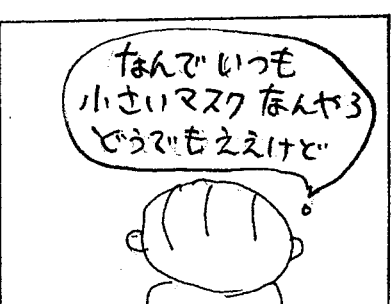 なんでいつも
小さいマスクなんやろ
どうでもええけど